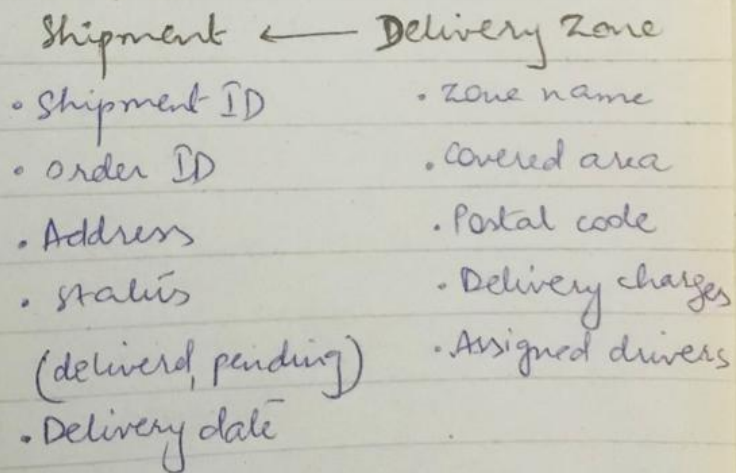 Shipment ← Delivery Zone
• Shipment ID
• Order ID
• Address
• status
(deliverd, pending)
• Delivery date
• Zone name
• Covered area
• Postal code
• Delivery charges
• Assigned drivers